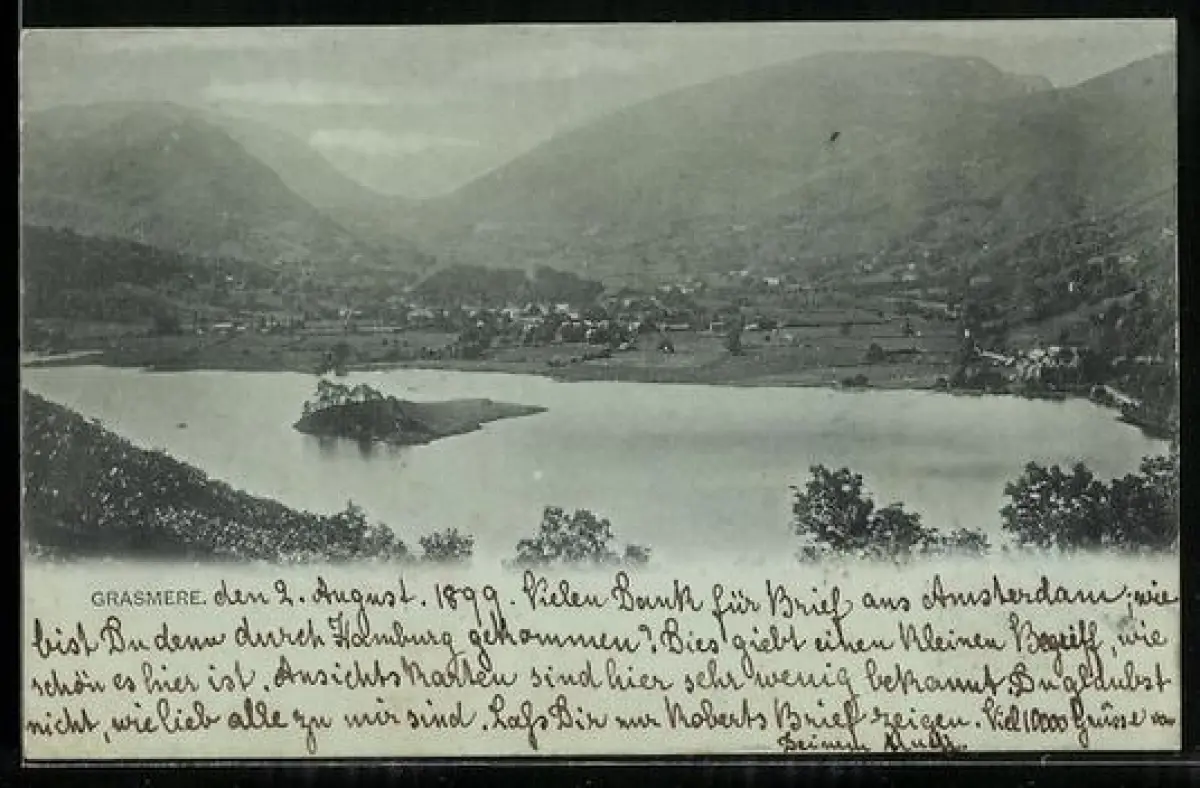 GRASMERE. den 2. August. 1899. Vielen Dank für Brief aus Amsterdam; wie
bist Du denn durch Hamburg gekommen? Dies giebt einen kleinen Begriff, wie
schön es hier ist. Ansichtskarten sind hier sehr wenig bekannt. Du glaubst
nicht, wie lieb alle zu mir sind. Lass Dir nur Roberts Brief zeigen. Viel 10000 Grüsse von
Deinem